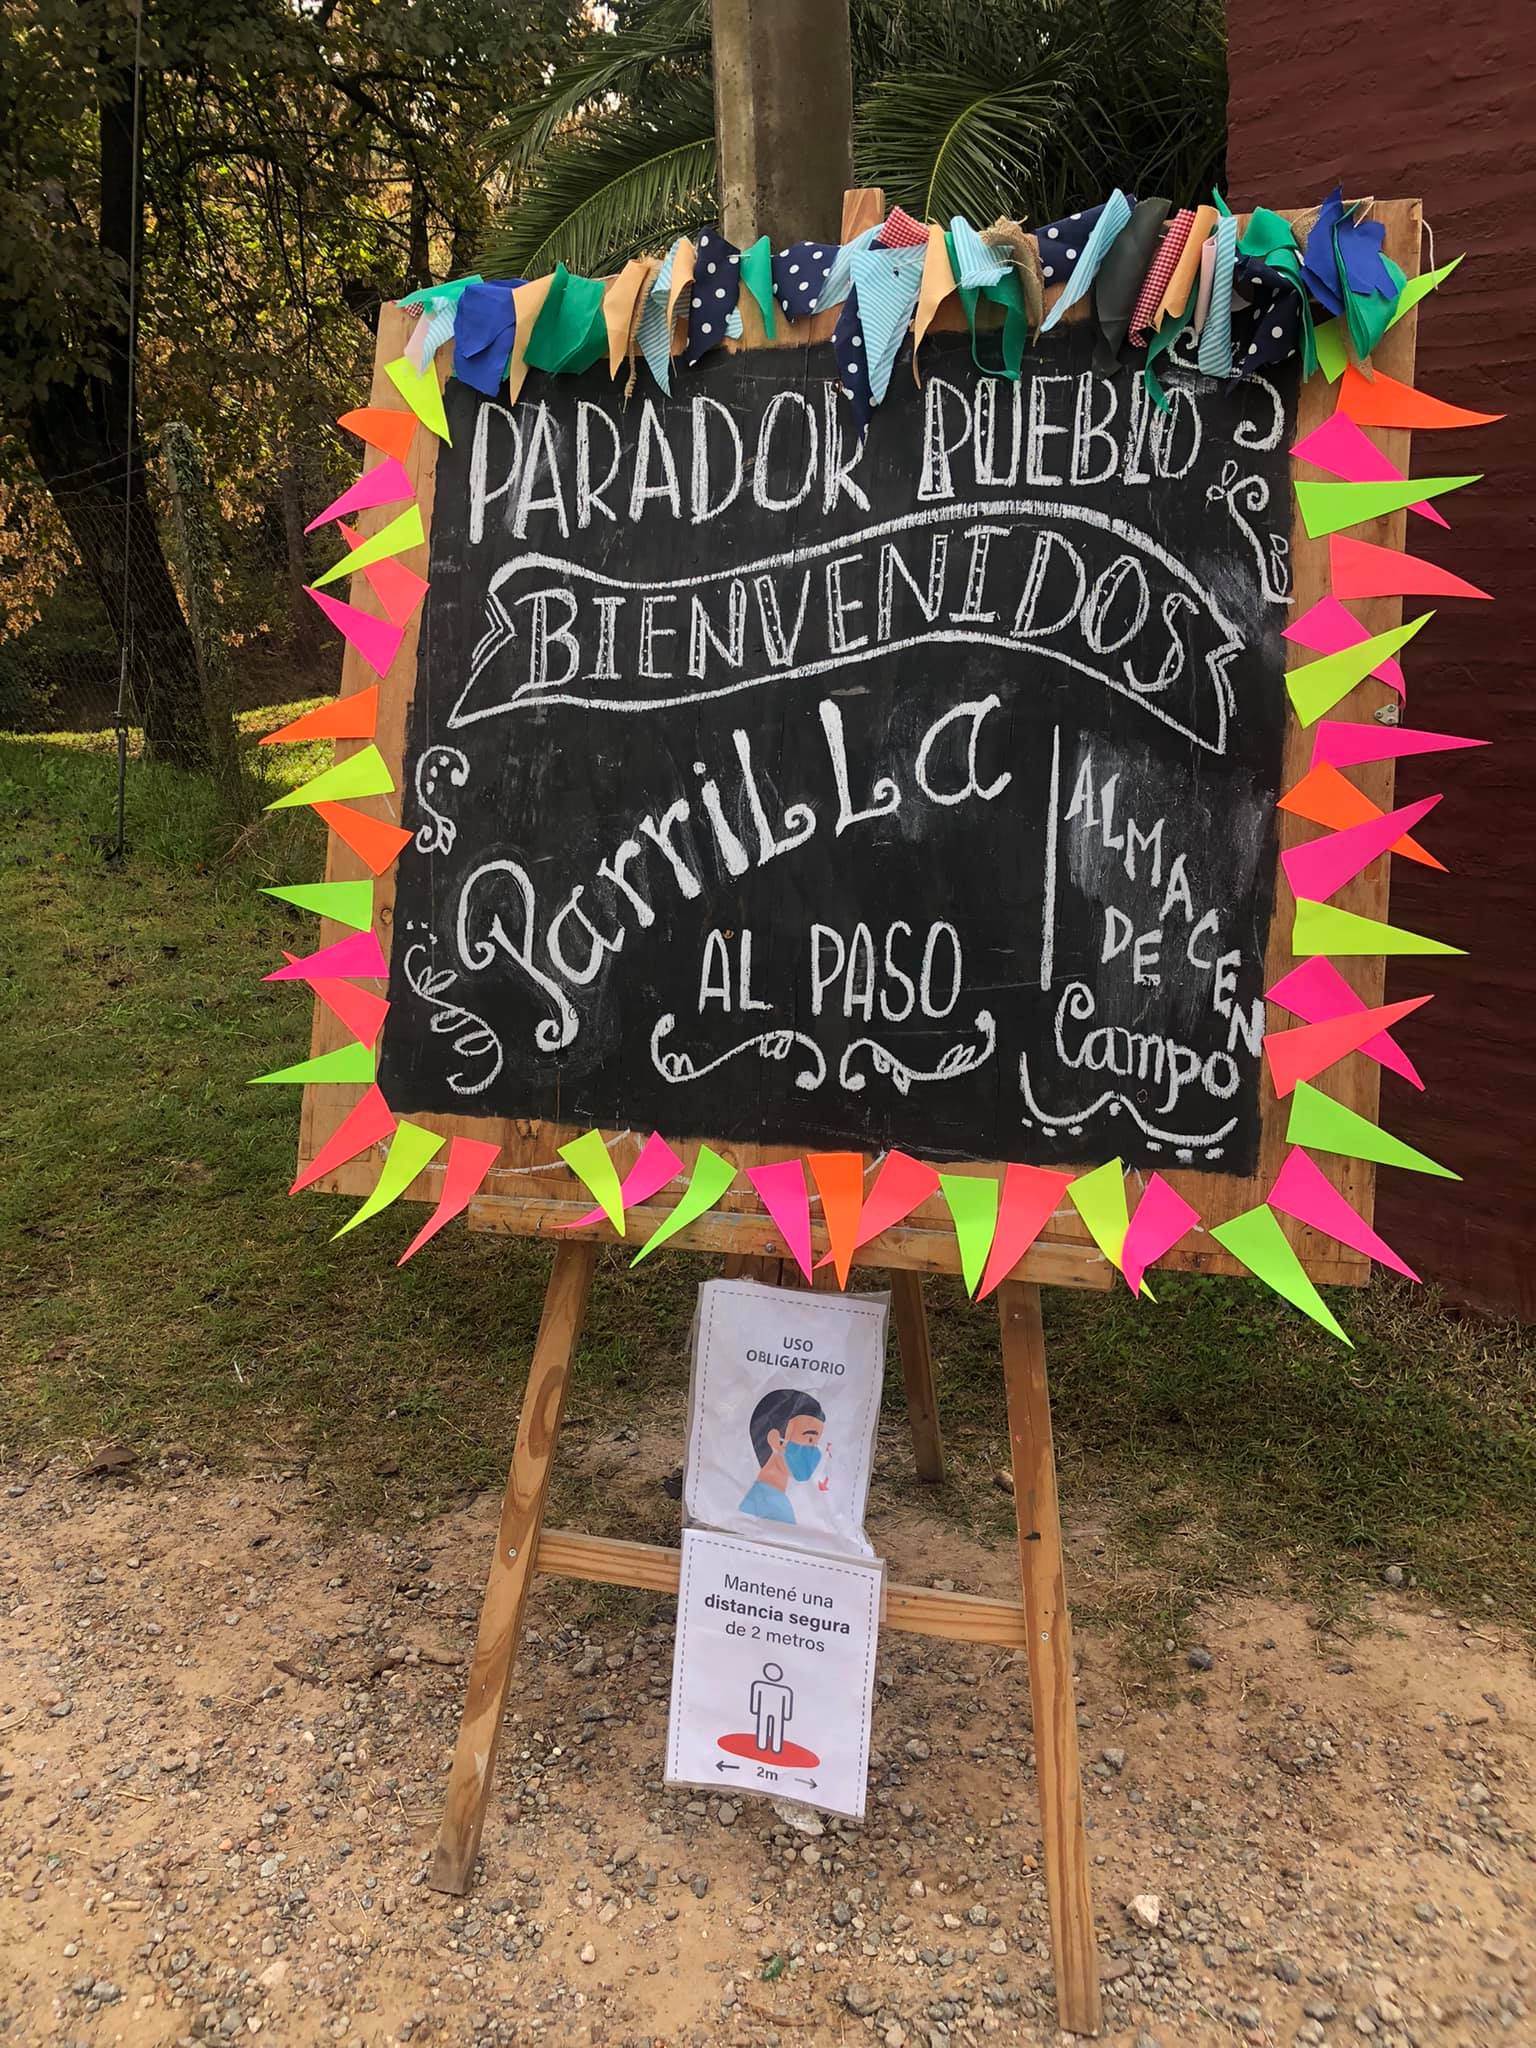 PARADOR PUEBLO
BIENVENIDOS
ParriLLa
AL PASO
ALMACEN
DE
Campo
USO
OBLIGATORIO
Mantené una
distancia segura
de 2 metros
2m